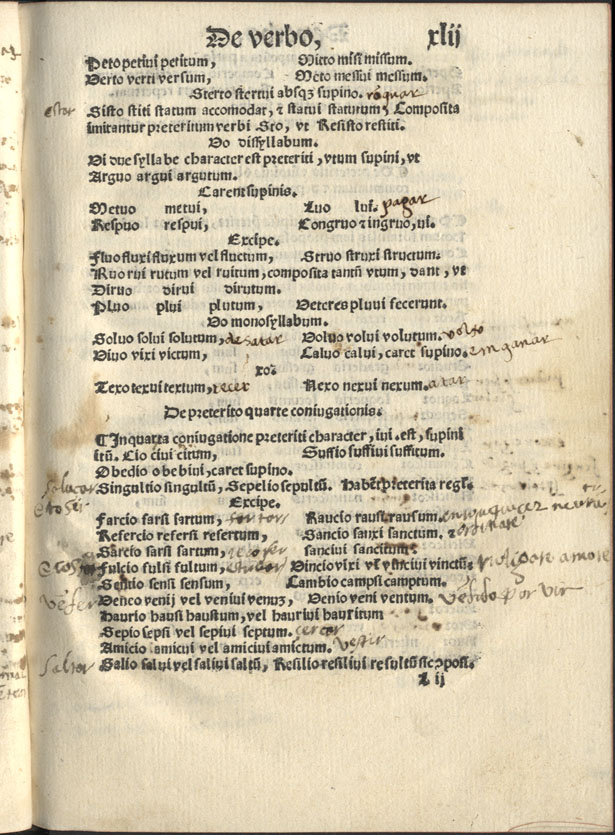 De verbo, xlij
Peto petivi petitum, Mitto misi missum.
Verto verti versum, Meto messui messum.
Sterto stertui absqꝫ supino. roquar
estar
Sisto stiti statum accomodar, ⁊ statui staturum, Composita
imitantur preteritum verbi Sto, vt Resisto restiti.
Uo dissyllabum.
Vi due syllabe character est preteriti, vtum supini, vt
Arguo argui argutum.
Carent supinis.
Metuo metui, Luo lui. pagar
Respuo respui, Congruo ⁊ ingruo, ui.
Excipe.
Fluo fluxi fluxum vel fluctum, Struo struxi structum.
Ruo rui rutum vel ruitum, composita tantũ vtum, dant, vt
Diruo dirui dirutum.
Pluo plui plutum, Veteres pluvi fecerunt.
Uo monosyllabum.
Solvo solvi solutum, desatar Volvo volvi volutum. volto
Vivo vixi victum, Calvo calvi, caret supino. enganar
xo.
Texo texui textum, tecer Nexo nexui nexum. atar
De preterito quarte coniugationis.
¶ In quarta coniugatione preteriti character, ivi, est, supini
itũ. Cio civi citum, Suffio suffivi suffitum.
Obedio obebivi, caret supino.
Singultio singultũ, Sepelio sepultũ. Habẽt preterita regl.
Excipe.
Farcio farsi fartum, Raucio rausi rausum.
Refercio refersi refertum, Sancio sanxi sanctum. ⁊
Sarcio sarsi sartum, sancivi sancitum.
Fulcio fulsi fultum, Vincio vixi vel vincivi vinctũ.
Sentio sensi sensum, Cambio campsi camptum.
Veneo venij vel venivi venuꝫ, Venio veni ventum. vendo por vir
Haurio hausi haustum, vel haurivi hauritum
Sepio sepsi vel sepivi septum. cercar
Amicio amicui vel amicivi amictum. vestir
saltar Salio salui vel salivi saltũ, Resilio resilivi resultũ ⁊ cõposi.